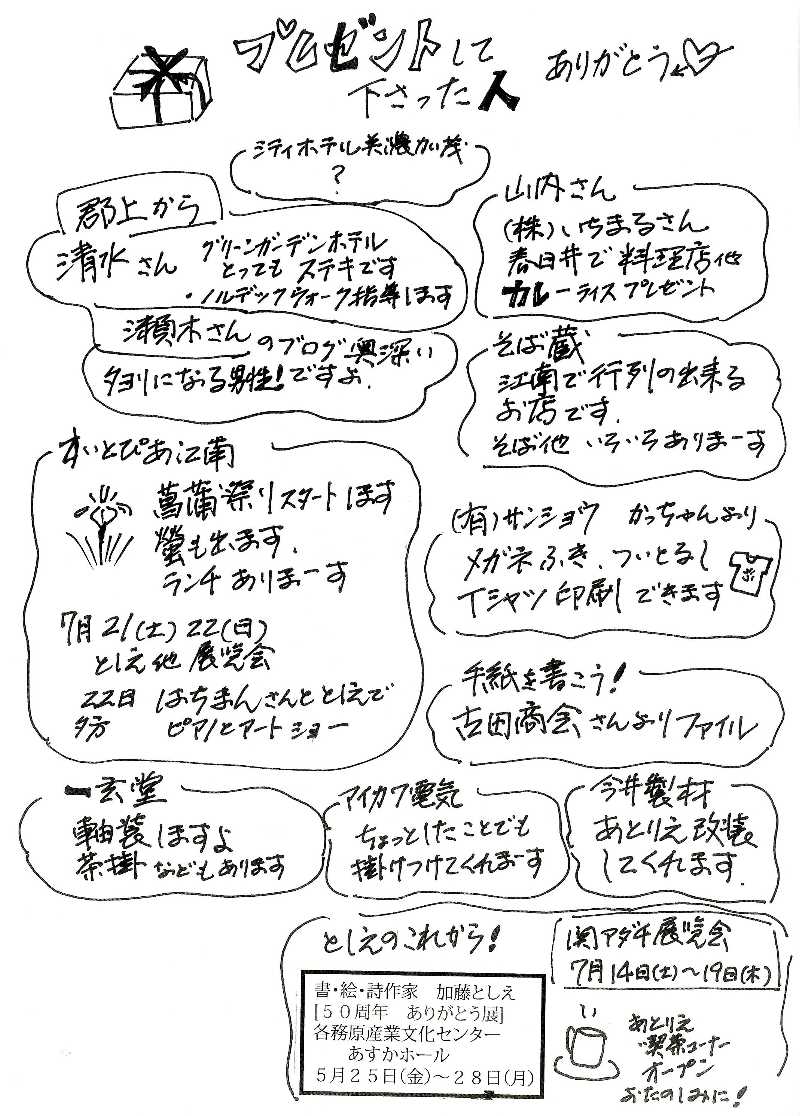 プレゼントして
下さった人
ありがとう
シティホテル美濃加茂
?
郡上から
清水さん グリーンガーデンホテル
とっても ステキです
・ノルデックウォーク指導します
瀬木さんのブログ奥深い
タヨリになる男性!ですよ.
山内さん
(株)いちまるさん
春日井で料理店他
カレーライスプレゼント
そば蔵
江南で行列の出来る
お店です.
そば他 いろいろありまーす
すいとぴあ江南
菖蒲祭りスタートします
螢も出ます.
ランチ ありまーす
7月21(土)22(日)
としえ他 展覧会
22日 はちまんさんととしえで
夕方 ピアノとアートショー
(有)サンショウ かっちゃんより
メガネふき、
Tシャツ印刷できます
手紙を書こう!
古田商会さんよりファイル
一玄堂
軸装しますよ
茶掛などもあります
マイカワ電気
ちょっとしたことでも
掛けつけてくれまーす
今井製材
あとりえ改装
してくれます.
としえのこれから!
書・絵・詩作家 加藤としえ
[50周年 ありがとう展]
各務原産業文化センター
あすかホール
5月25日(金)~28日(月)
関アダチ展覧会
7月14日(土)~19日(木)
あとりえ
喫茶コーナー
オープン
おたのしみに!